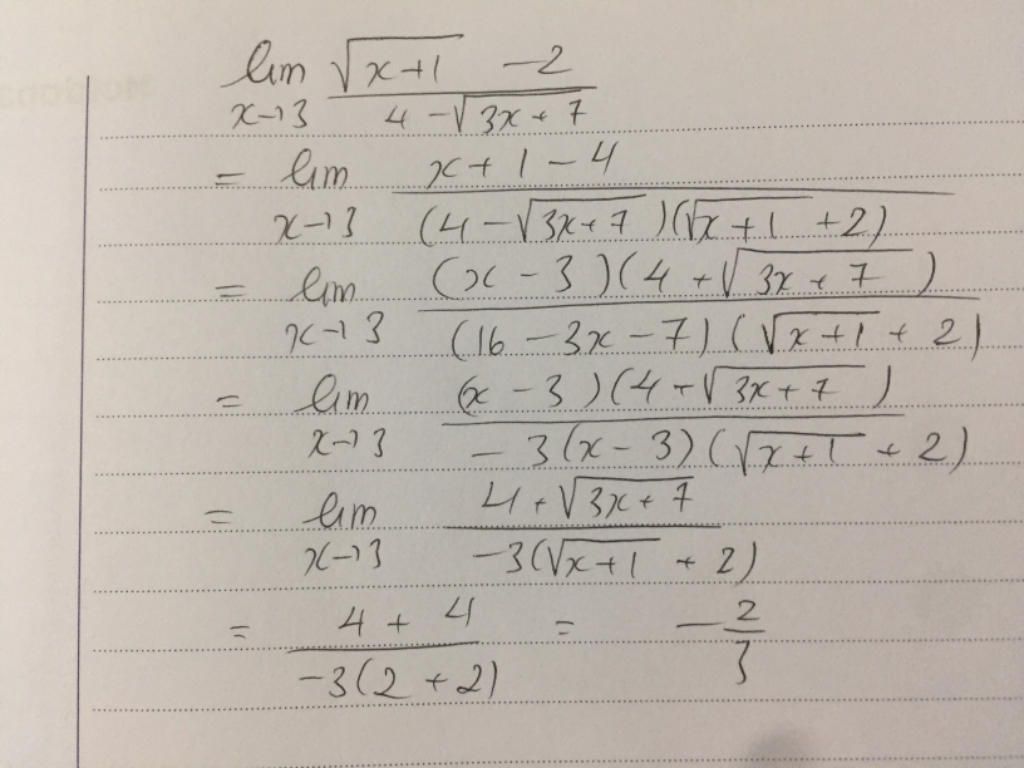 lim x→3 (√(x+1) - 2) / (4 - √(3x+7))
= lim x→3 (x+1-4) / ((4-√(3x+7))(√(x+1)+2))
= lim x→3 ((x-3)(4+√(3x+7))) / ((16-3x-7)(√(x+1)+2))
= lim x→3 ((x-3)(4+√(3x+7))) / (-3(x-3)(√(x+1)+2))
= lim x→3 (4+√(3x+7)) / (-3(√(x+1)+2))
= (4+4) / (-3(2+2)) = -2/3